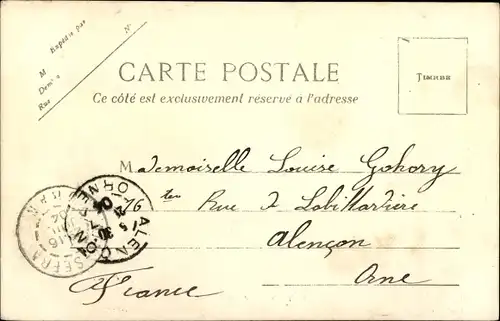 Expédié par
N°
M
Dem^t à
Rue
CARTE POSTALE
Ce côté est exclusivement réservé à l'adresse
TIMBRE
Mademoiselle Louise Gohory
16 Rue de Labillardière
Alençon
Orne
France
ALENÇON
ORNE